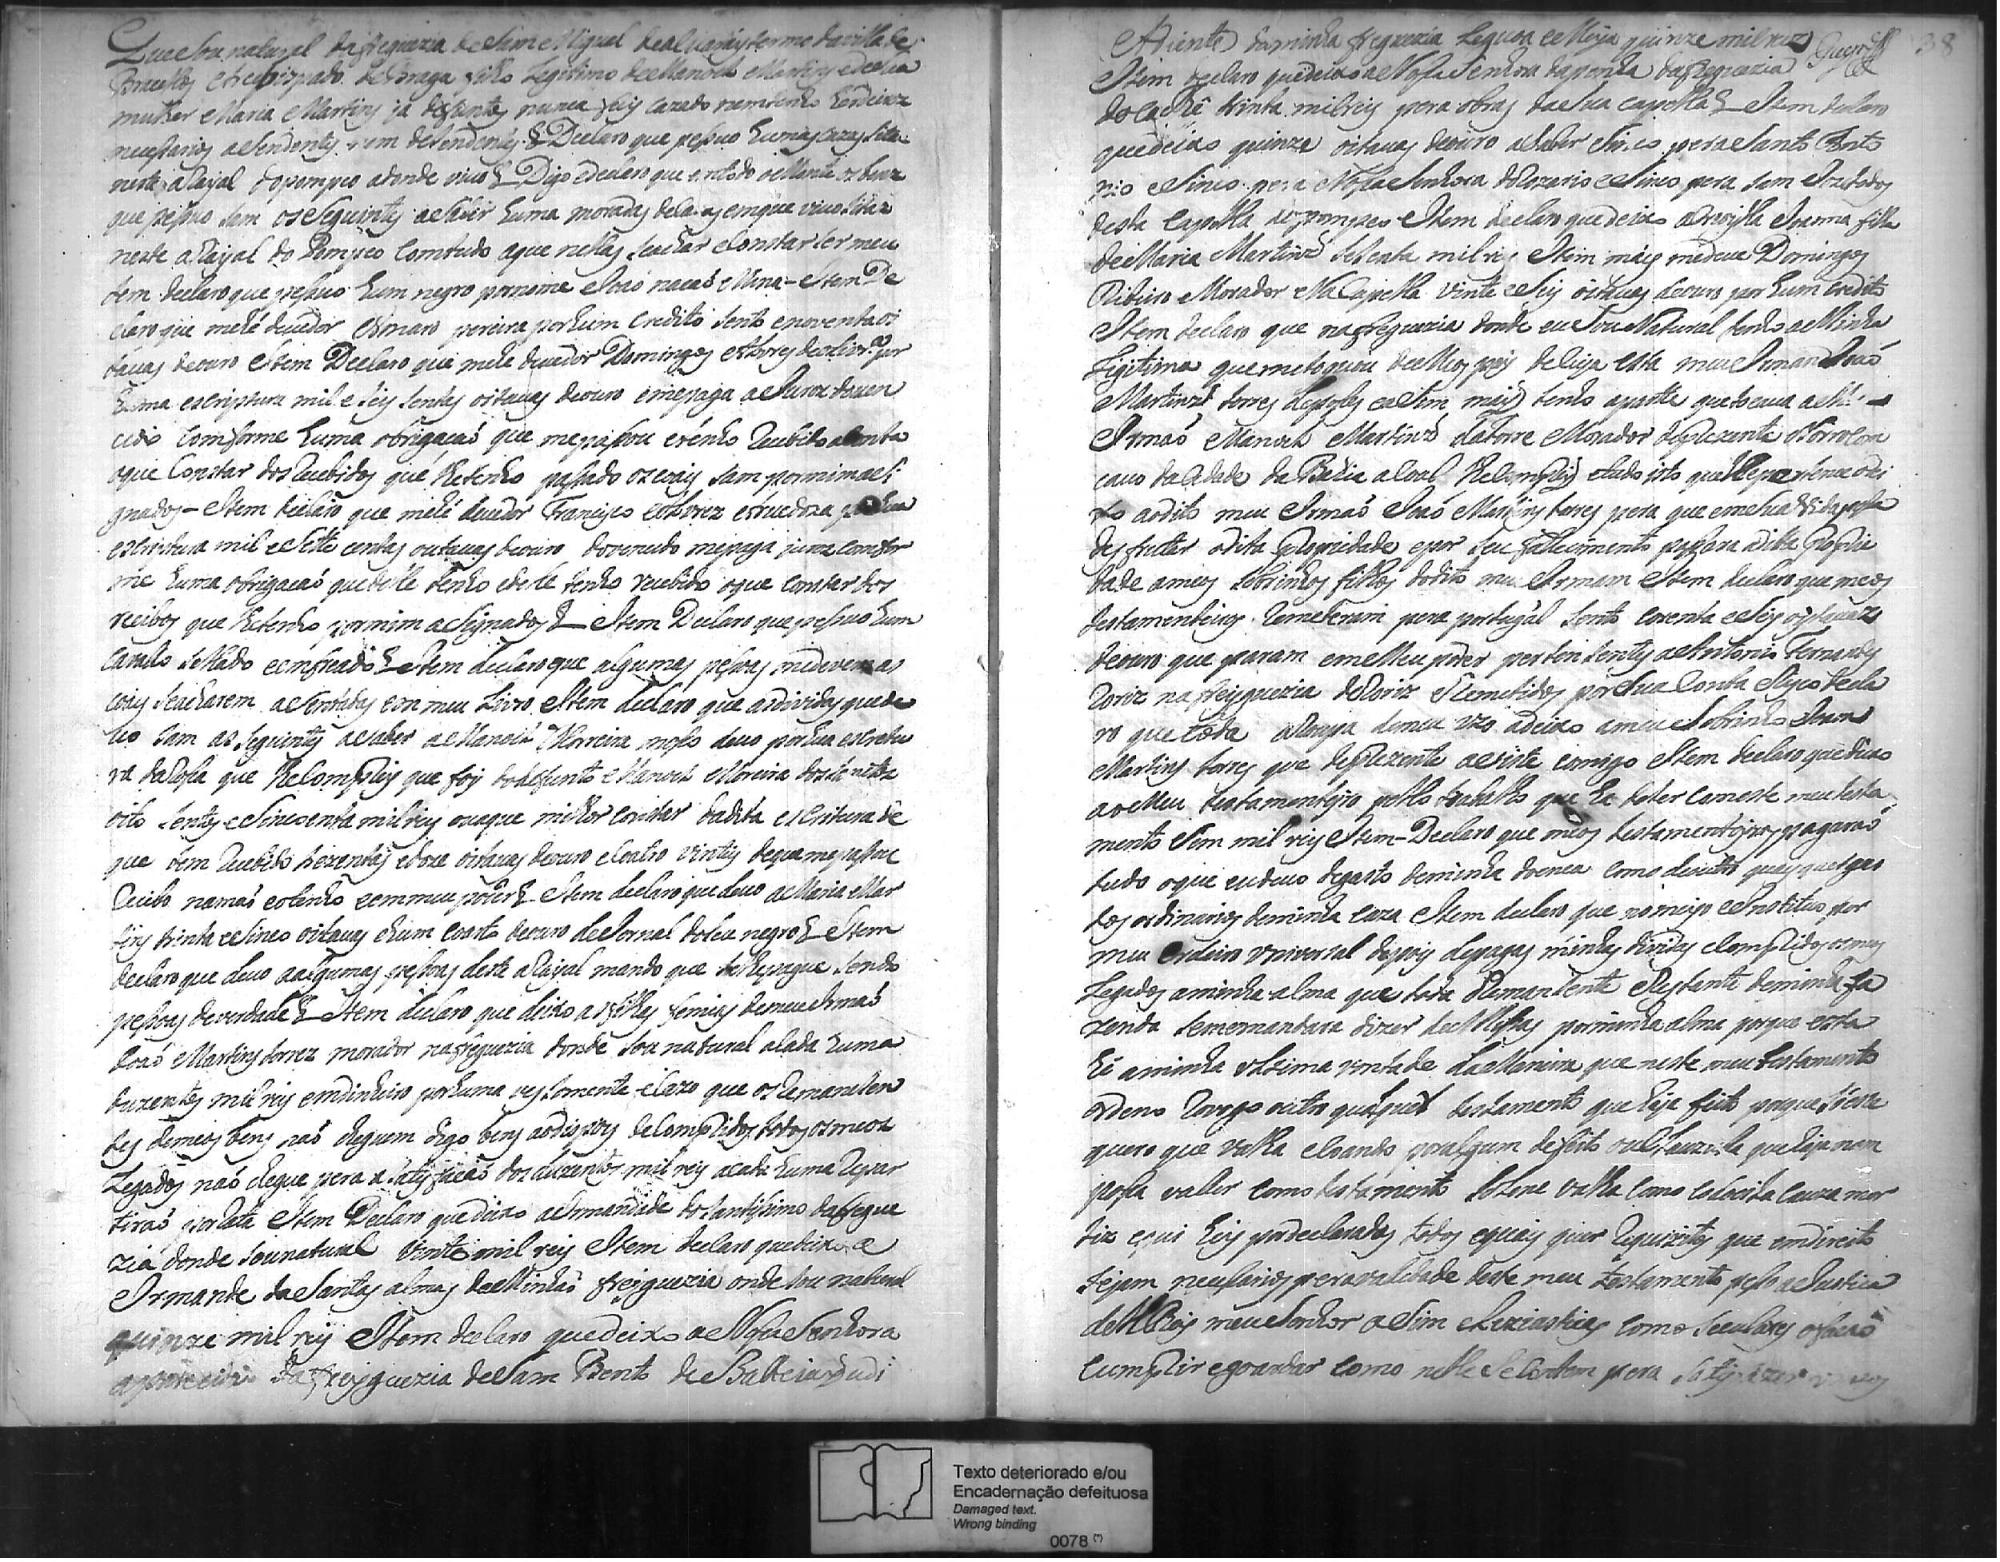 Que Sou natural da freguezia de Sam Miguel de alvarãis termo da villa de
Barcellos e Arcebispado de Braga filho Legitimo de Manoel Martins e de Sua
mulher Maria Martins já defuntos nunca fuy cazado nem tenho herdeiros
necessarios asendentes nem desendentes & Declaro que pessuo humas cazas sitas
neste aRayal do pompeo adonde vivo & Digo e declaro que
que pessuo sam os Seguintes a Saber huma morada de cazas em que vivo sitas
neste aRayal do Pompeo Com tudo aque nellas se achar e Constar ser meu
Item declaro que pessuo hum negro por nome João nacaó Mina - Item De
claro que me hé devedor Amaro pereira por hum Credito Sento e noventa oi
tavas de ouro e Item Declaro que me he devedor Domingos Alvres de olivr.ª por
huma escriptura mil e seis sentas oitavas de ouro e me paga a Juros de ven
cido Comforme huma obrigaçaó que me passou e tenho Recebido a Conta
o que Constar dos Recebidos que lhe tenho passado os coais sam por mim asi
gnados - Item declaro que me hé devedor Francisco Alvrez por hua
escritura mil e Sette centas outavas de ouro do vencido me paga juros confor
me huma obrigacaó que delle tenho e delle tenho recebido o que constar dos
recibos que lhe tenho por mim aSignados & Item Declaro que pessuo hum
Cavallo Sellado e emfreado & Item declaro que algumas pesoas me devem as
coais se acharem aSentadas em meu Livro Item declaro que as dividas que de
vo Sam as seguintes a saber a Manoel Morreira devo por hua escretu
ra da Rosa que lhe Comprey que foy do defunto Manoel Moreira
oito Sentos e Sincoenta mil reis ou aque milhor constar da dita escritura de
que tem Recebido trezentas e doze oitavas de ouro e coatro vintes de que me passou
Recibo na maó e o tenho em meu poder & Item declaro que devo a Maria Mar
tins trinta e Sinco oitavas e hum coarto de ouro de Jornal do seu negro & Item
declaro que devo a algumas pessoas deste aRayal mando que se lhe pague sendo
pessoas de verdade & Item declaro que deixo as filhas femias de meu Irmaó
Joaó Martins torrez morador na freguezia donde Sou natural a cada huma
duzentos mil reis em dinheiro por huma ves somente e Cazo que os Remanesen
tes de meos bens naó cheguem digo bens ao dispois de Compridos todos os meos
Legados naó chegue pera a satisfaçaó dos duzentos mil reis a cada huma Repar
tiraó por Rata Item Declaro que deixo a Irmandade do Santissimo da fregue
zia donde Sou natural vinte mil reis Item declaro que deixo a
Irmande da Santas almas de Minha freiguezia onde Sou natural
quinze mil reis Item declaro que deixo a Nosa Senhora
aparecida da freiguezia de Sam Bento de
Adiente da minha freguezia Legoa e Meya quinze mil reis
38
Item declaro que deixo a Nosa Senhora da penha da freguezia
do trinta mil reis pera obras da Sua Capella & Item declaro
que deixo quinze oitavas de ouro a Saber Sinco pera Santo Anto
nio e Sinco pera Nosa Senhora do Rozario e Sinco pera Sam
desta Capella do pompeo Item declaro que deixo a Joanna filha
de Maria Martins Sesenta mil reis Item mais me deve Domingos
Ribeiro Morador Na Capella vinte e Seis oitavas de ouro por hum Credito
Item declaro que na freguezia donde eu Sou Natural tenho a Minha
Ligitima que me toquou de Meos pais de Cuja esta meu Irman Joaó
Martinz torres de posse e aSim mais tenho a parte que tocava a Meu
Irmaó Manoel Martinz da torre Morador de prezente
da Cidade da Bahia a coal lhe Comprey e tudo isto que me pertence o dei
xo ao dito meu Irmaó Joaó Martins torres pera que em Sua vida possa
desfrutar a dita Propriedade e por Seu falecimento passara a dita Proprie
dade a meos Sobrinhos filhos do dito meu Irmam Item declaro que meos
testamenteiros Remeteram pera portugal Sento e corenta e Seis oytavas
de ouro que param em Meu poder pertensentes a Antonio Fernandes
Roriz na freiguezia de Roriz Remetidos por Sua Conta e Risco Decla
ro que toda a Roupa de meu uzo a deixo a meu Sobrinho
Martins torres que de prezente aSiste comigo Item declaro que deixo
ao Meu testamenteyro pello trabalho que ha de ter com este meu testa
mento Sem mil reis Item - Declaro que meos testamenteyros pagaraó
tudo o que eu devo de gasto de minha doenca como de outros quaisquer gas
tos ordinarios de minha Caza Item declaro que nomeyo e Instituo por
meu erdeiro universal depois de pagas minhas dividas e Compridos os meus
Legados a minha alma que toda Remanesente e Restante de minha fa
zenda se me mandara dizer de Missas por minha alma porque esta
hé a minha ultima vontade da Maneira que neste meu testamento
ordeno Revogo outro qualquer testamento que haja feito porque só este
quero que valha e coando por algum defeito ou Clauzula que haja nam
possa valer como testamento Solene valha como Codecilo Cauza mor
tis e aqui hey por declarados todos e quais quer Requizitos que em direito
sejam necesarios pera validade deste meu testamento peso a Justica
de El Rey meu Senhor aSim eclesiasticas como Seculares o facaó
Cumprir e goardar como nelle Se Contem pera Satisfazer
Texto deteriorado e/ou
Encadernação defeituosa
Damaged text.
Wrong binding
0078 (*)